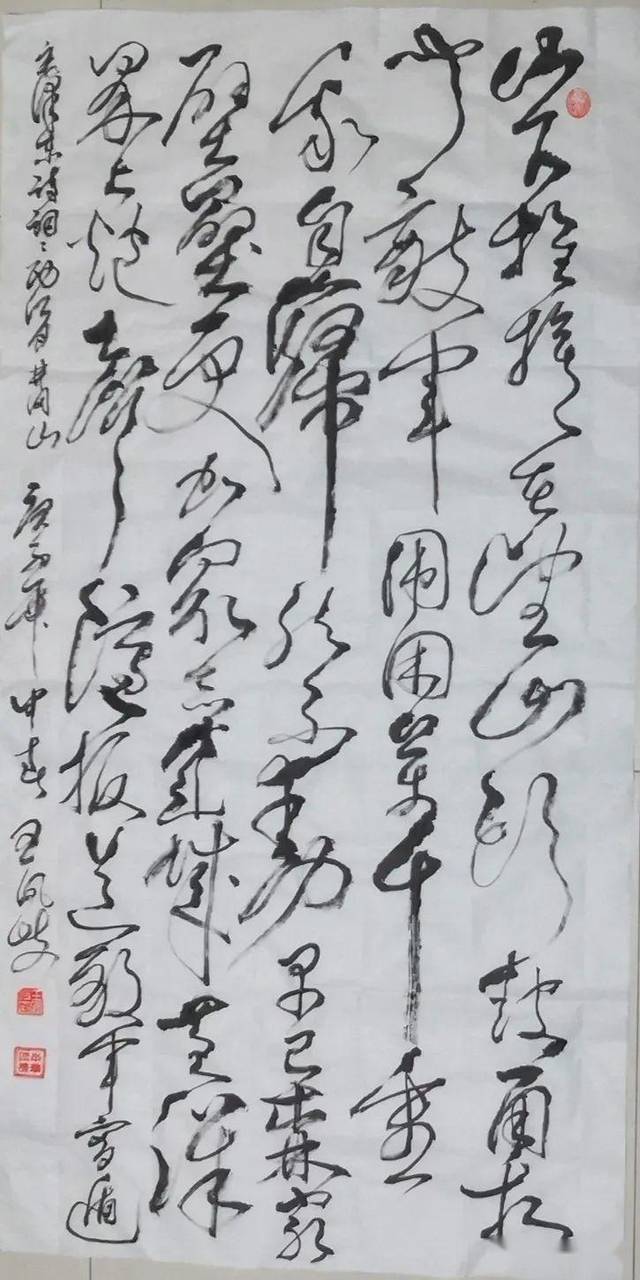 山下旌旗在望山头鼓角相
闻敵军围困万千重
我自巋然不動早已森严
壁壘更加众志成城黄洋
界上炮声隆报道敌军宵遁
毛泽东诗词西江月井冈山 庚子年中春 王凤岐